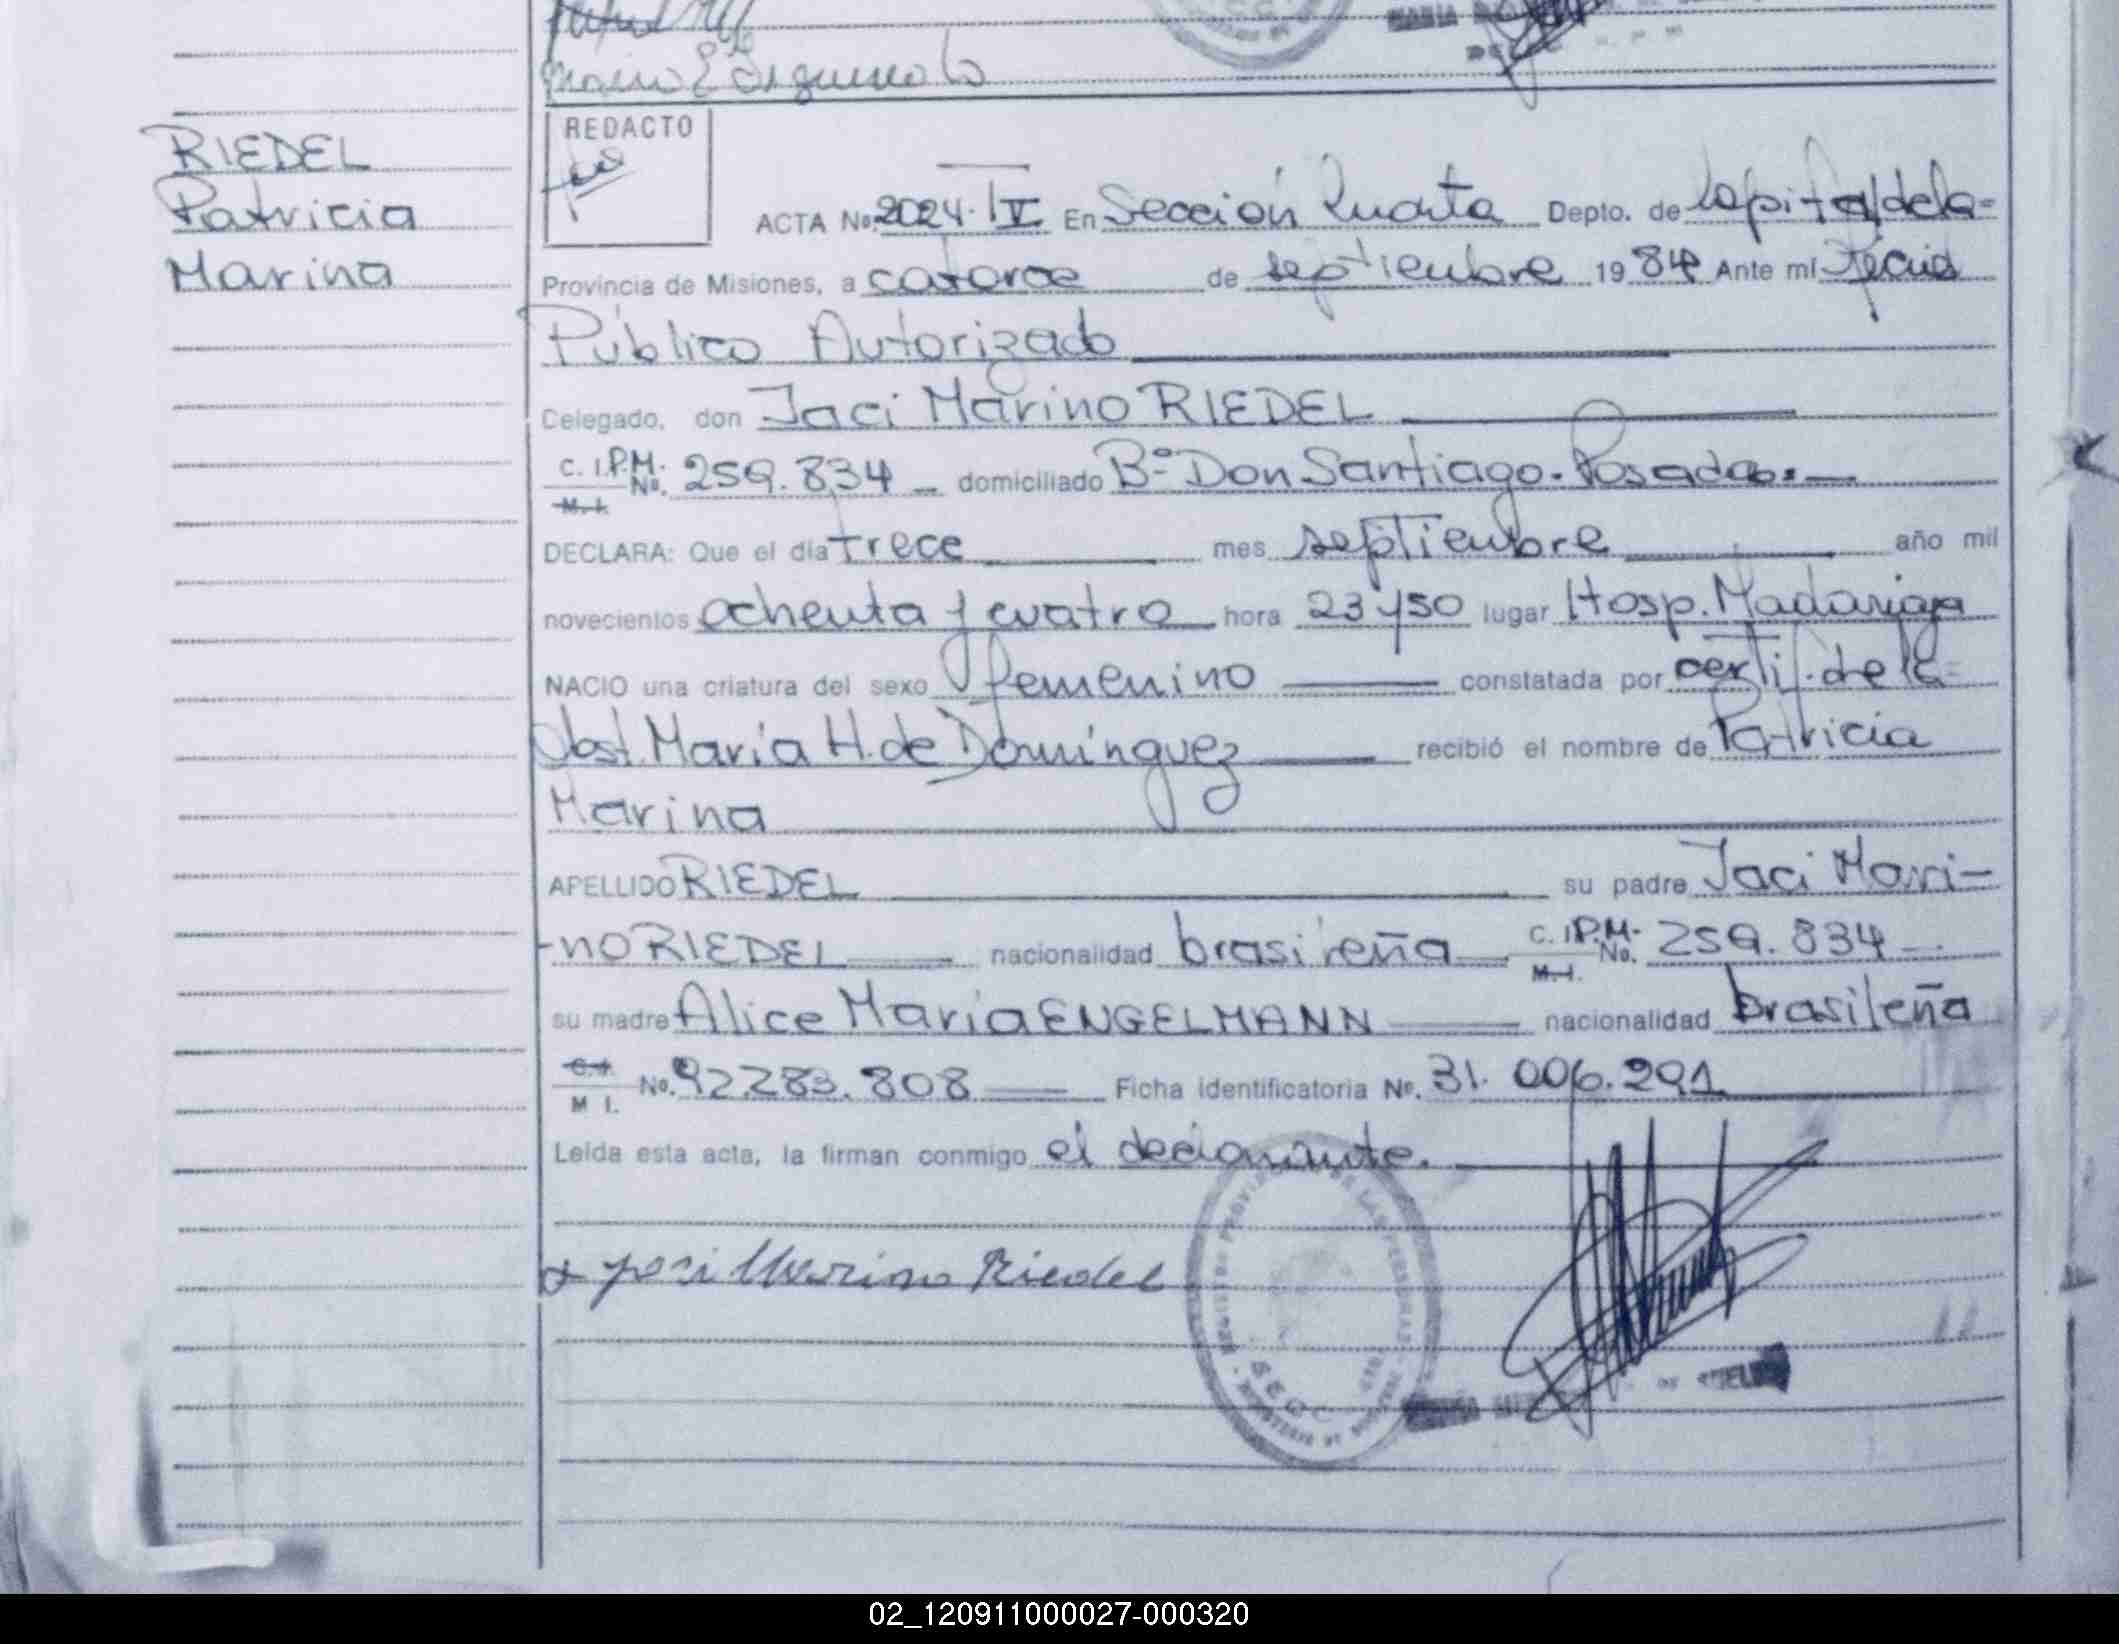 RIEDEL
Patricia
Marina
REDACTO
ACTA No. 2024-IV En Sección Cuarta Depto. de Capital de la-
Provincia de Misiones, a catorce de septiembre 1984 Ante mí
Público Autorizado
Celegado, don Jaci Marino RIEDEL
C. I.P.M. No. 259.834 domiciliado Bº Don Santiago. Posadas.
M. I.
DECLARA: Que el día trece mes septiembre año mil
novecientos ochenta y cuatro hora 23 y 50 lugar Hosp. Madariaga
NACIO una criatura del sexo femenino constatada por certif. de la
Obst. María H. de Domínguez recibió el nombre de Patricia
Marina
APELLIDO RIEDEL su padre Jaci Mari-
-no RIEDEL nacionalidad brasileña C. I.P.M. No. 259.834
M. I.
su madre Alice María ENGELMANN nacionalidad brasileña
C. I.
M I. No. 92.283.808 Ficha identificatoria No. 31.006.291
Leída esta acta, la firman conmigo el declarante.
Marino Riedel
02_120911000027-000320